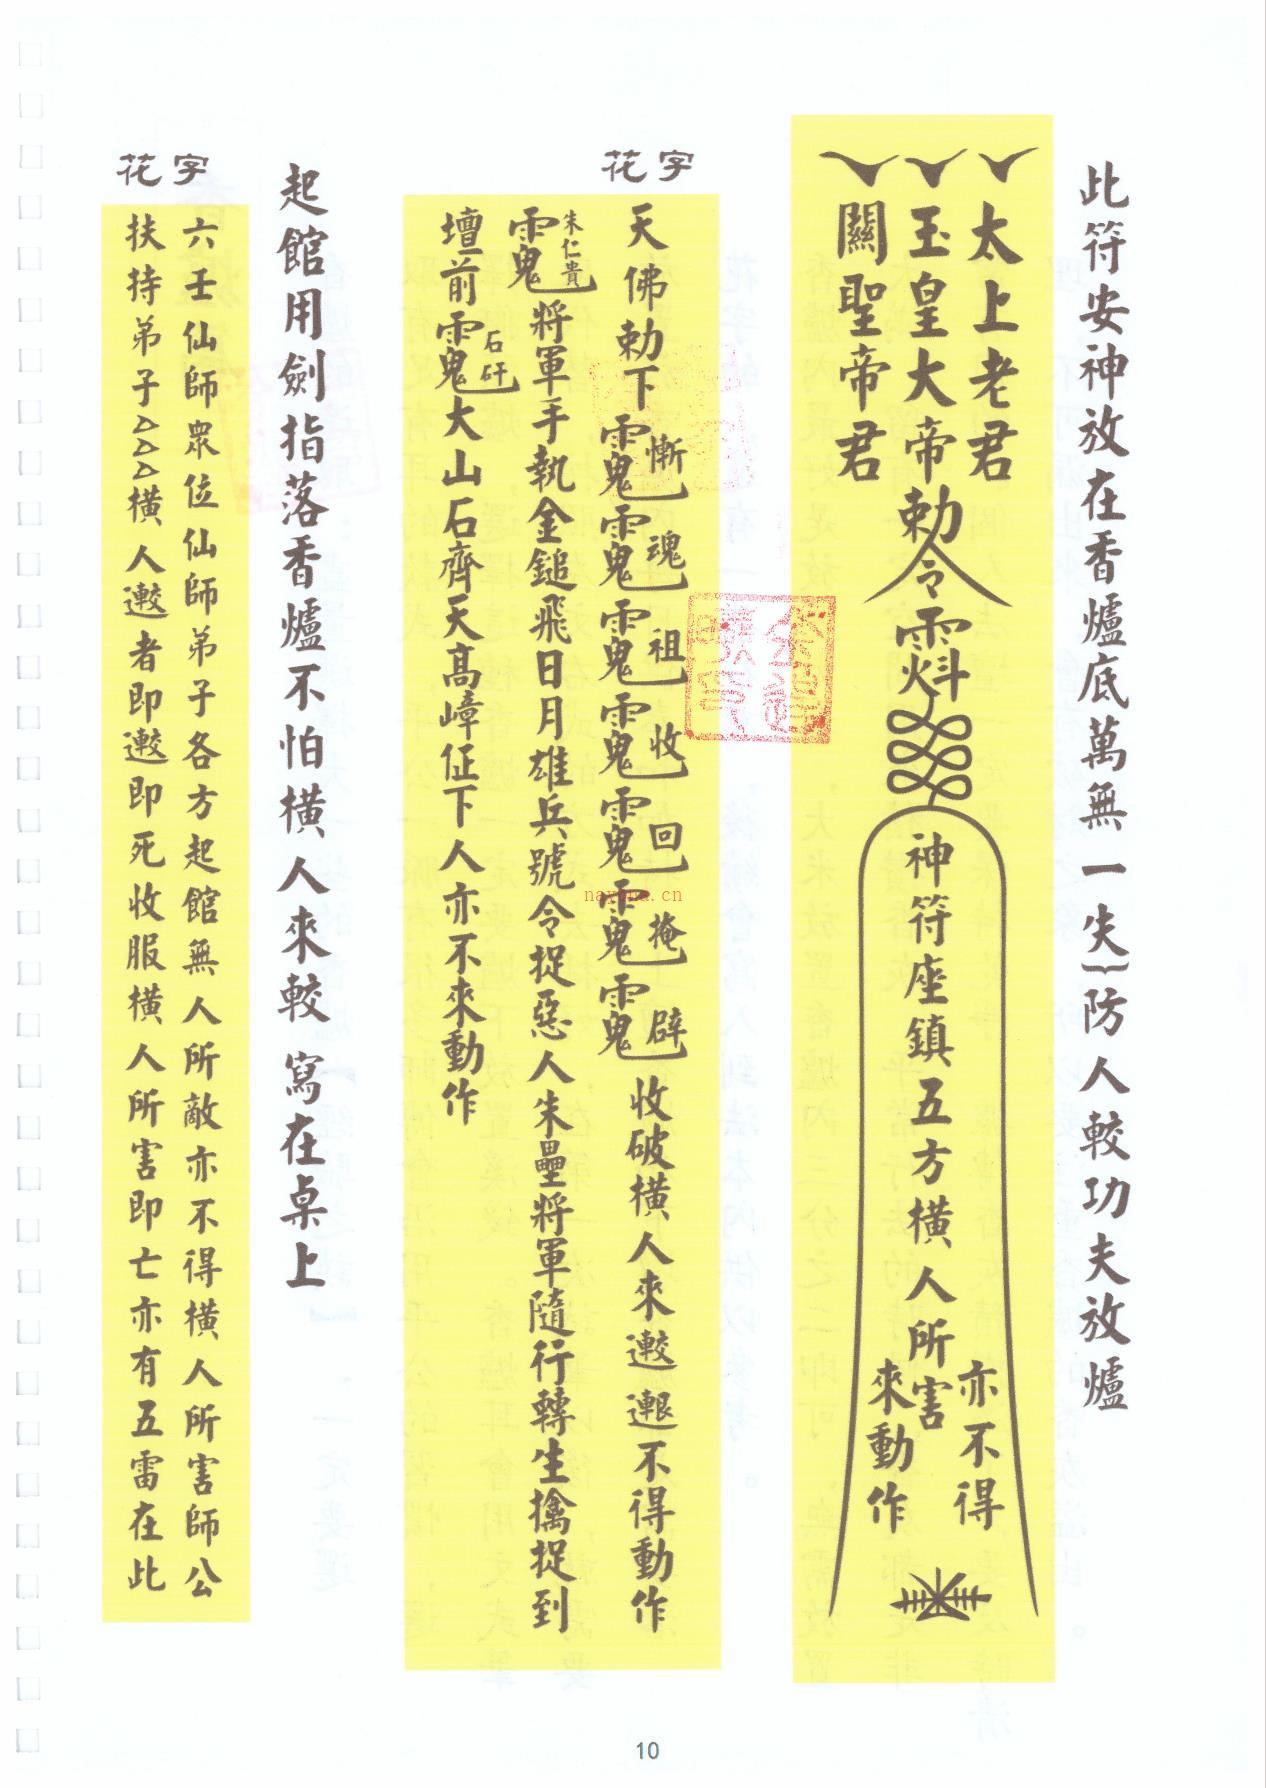 此符安神放在香爐底萬無一失防人較功夫放爐
太上老君
玉皇大帝
關聖帝君
勅令
神符座鎮五方橫人所害
亦不得
來動作
花字
天佛勅下
慚
魂
祖
收
回
掩
辟
收破橫人來不得動作
朱仁貴
將軍手執金鎚飛日月雄兵號令捉惡人朱壘將軍隨行轉生擒捉到
壇前
石矸
大山石齊天高嶂征下人亦不來動作
起館用劍指落香爐不怕橫人來較 寫在桌上
花字
六壬仙師眾位仙師弟子各方起館無人所敵亦不得橫人所害師公
扶持弟子△△△橫人者即即死收服橫人所害即亡亦有五雷在此
nayona.cn
10